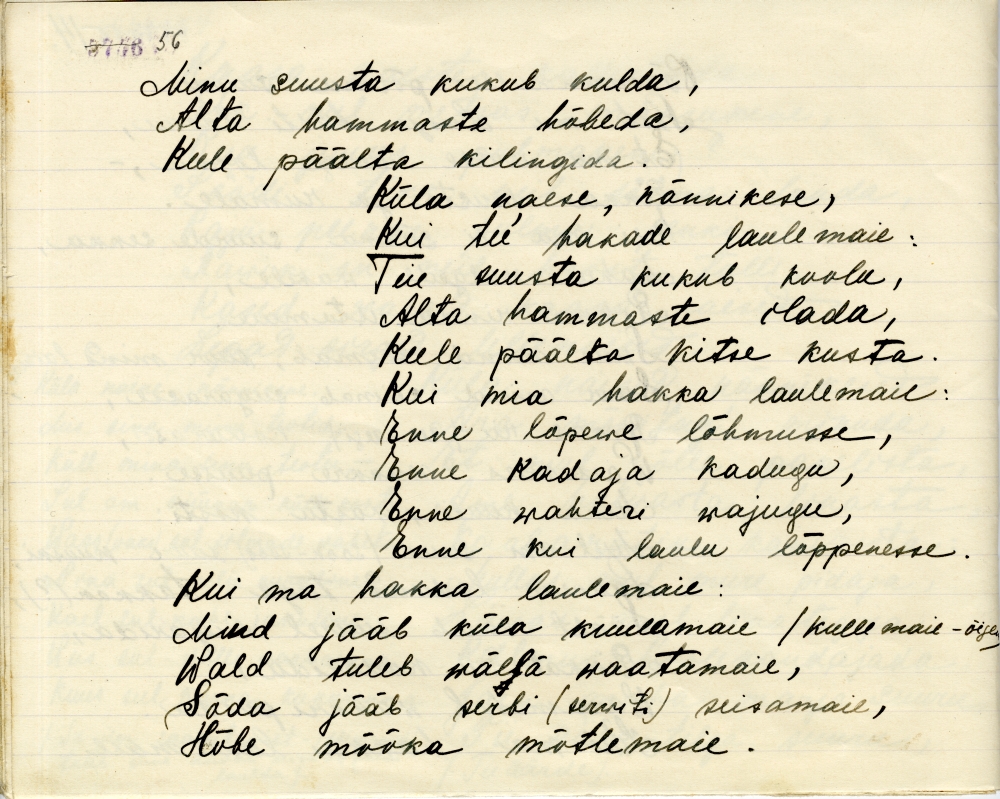 56
Minu suusta kukub kulda,
Alta hammaste hõbeda,
Keele päälta kilingida.
Küla naese, nännikese,
Kui tei hakade laulemaie:
Teie suusta kukub koolu,
Alta hammaste ilada,
Keele päälta kitse kusta.
Kui mia hakka laulemaie:
Enne lõpewe lõhmusse,
Enne kadaja kadugu,
Enne wahteri wajugu,
Enne kui laulu lõppenesse.
Kui ma hakka laulemaie:
Mind jääb küla kuulamaie (kulle maie - õigem
Wald tuleb wällä waatamaie,
Sõda jääb serbi (serwiti) seisamaie,
Hõbe mõõka mõtlemaie.